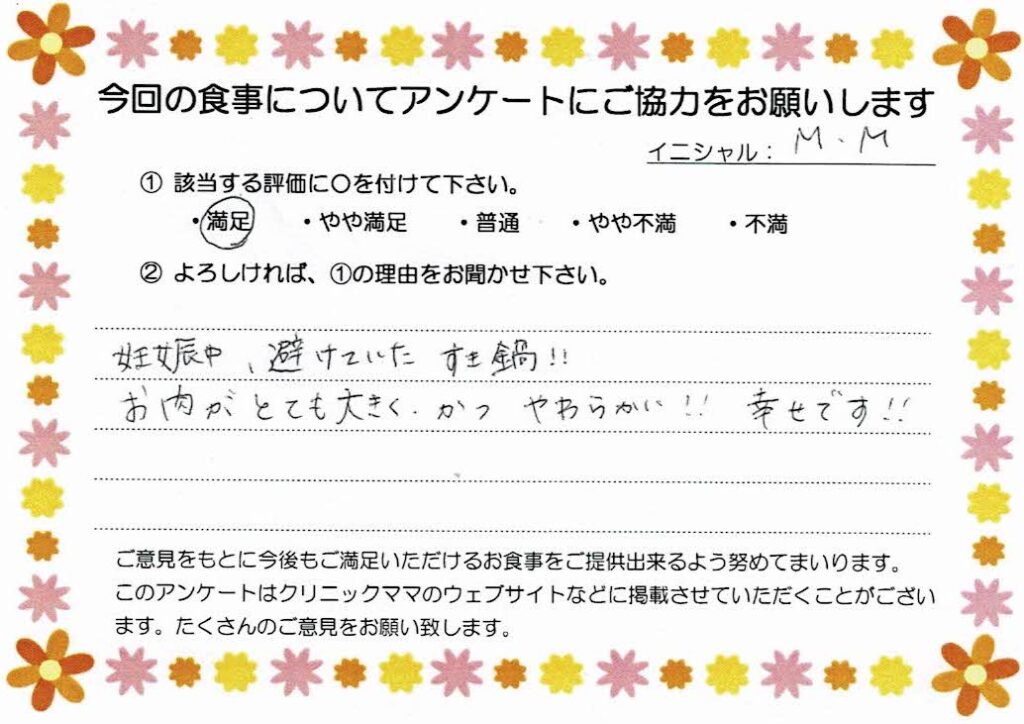 今回の食事についてアンケートにご協力をお願いします
イニシャル： M.M
① 該当する評価に〇を付けて下さい。
・満足 ・やや満足 ・普通 ・やや不満 ・不満
② よろしければ、①の理由をお聞かせ下さい。
妊娠中、避けていた すき鍋!!
お肉がとても大きく、かつ やわらかい!! 幸せです!!
ご意見をもとに今後もご満足いただけるお食事をご提供出来るよう努めてまいります。
このアンケートはクリニックママのウェブサイトなどに掲載させていただくことがござい
ます。たくさんのご意見をお願い致します。